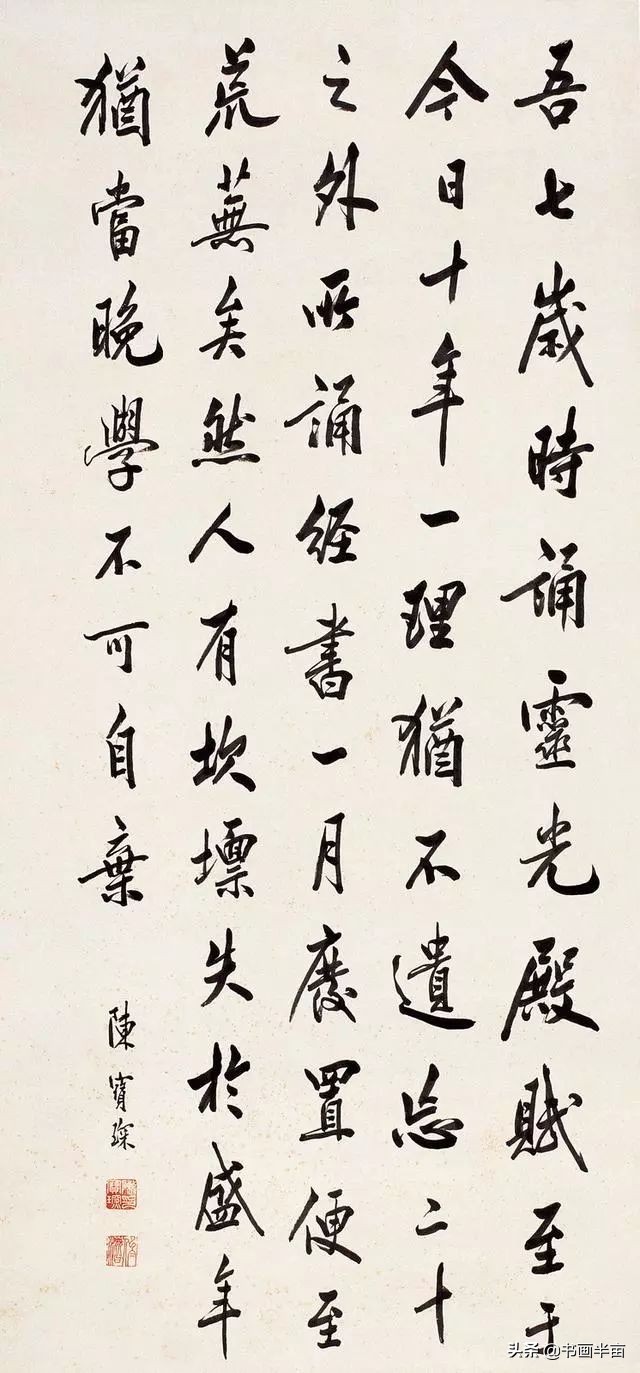 吾七歲時誦靈光殿賦至于
今日十年一理猶不遺忘二十
之外所誦經書一月廢置便至
荒蕪矣然人有坎壈失於盛年
猶當晚學不可自棄
陳寶琛
头条@书画半亩